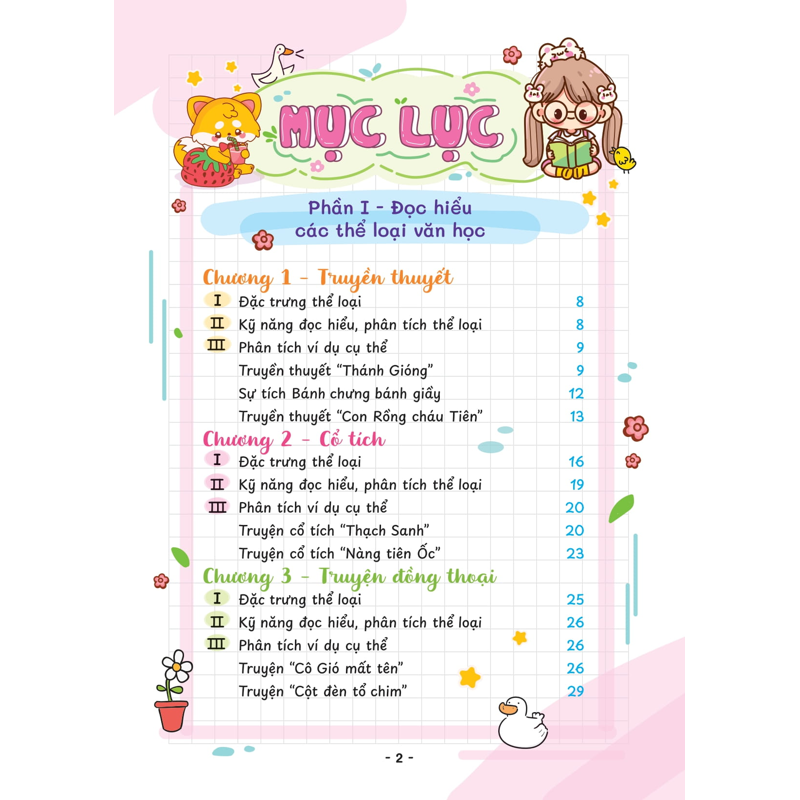 MỤC LỤC
Phần I - Đọc hiểu
các thể loại văn học
Chương 1 - Truyền thuyết
I Đặc trưng thể loại 8
II Kỹ năng đọc hiểu, phân tích thể loại 8
III Phân tích ví dụ cụ thể 9
Truyền thuyết “Thánh Gióng” 9
Sự tích Bánh chưng bánh giầy 12
Truyền thuyết “Con Rồng cháu Tiên” 13
Chương 2 - Cổ tích
I Đặc trưng thể loại 16
II Kỹ năng đọc hiểu, phân tích thể loại 19
III Phân tích ví dụ cụ thể 20
Truyện cổ tích “Thạch Sanh” 20
Truyện cổ tích “Nàng tiên Ốc” 23
Chương 3 - Truyện đồng thoại
I Đặc trưng thể loại 25
II Kỹ năng đọc hiểu, phân tích thể loại 26
III Phân tích ví dụ cụ thể 26
Truyện “Cô Gió mất tên” 26
Truyện “Cột đèn tổ chim” 29
- 2 -